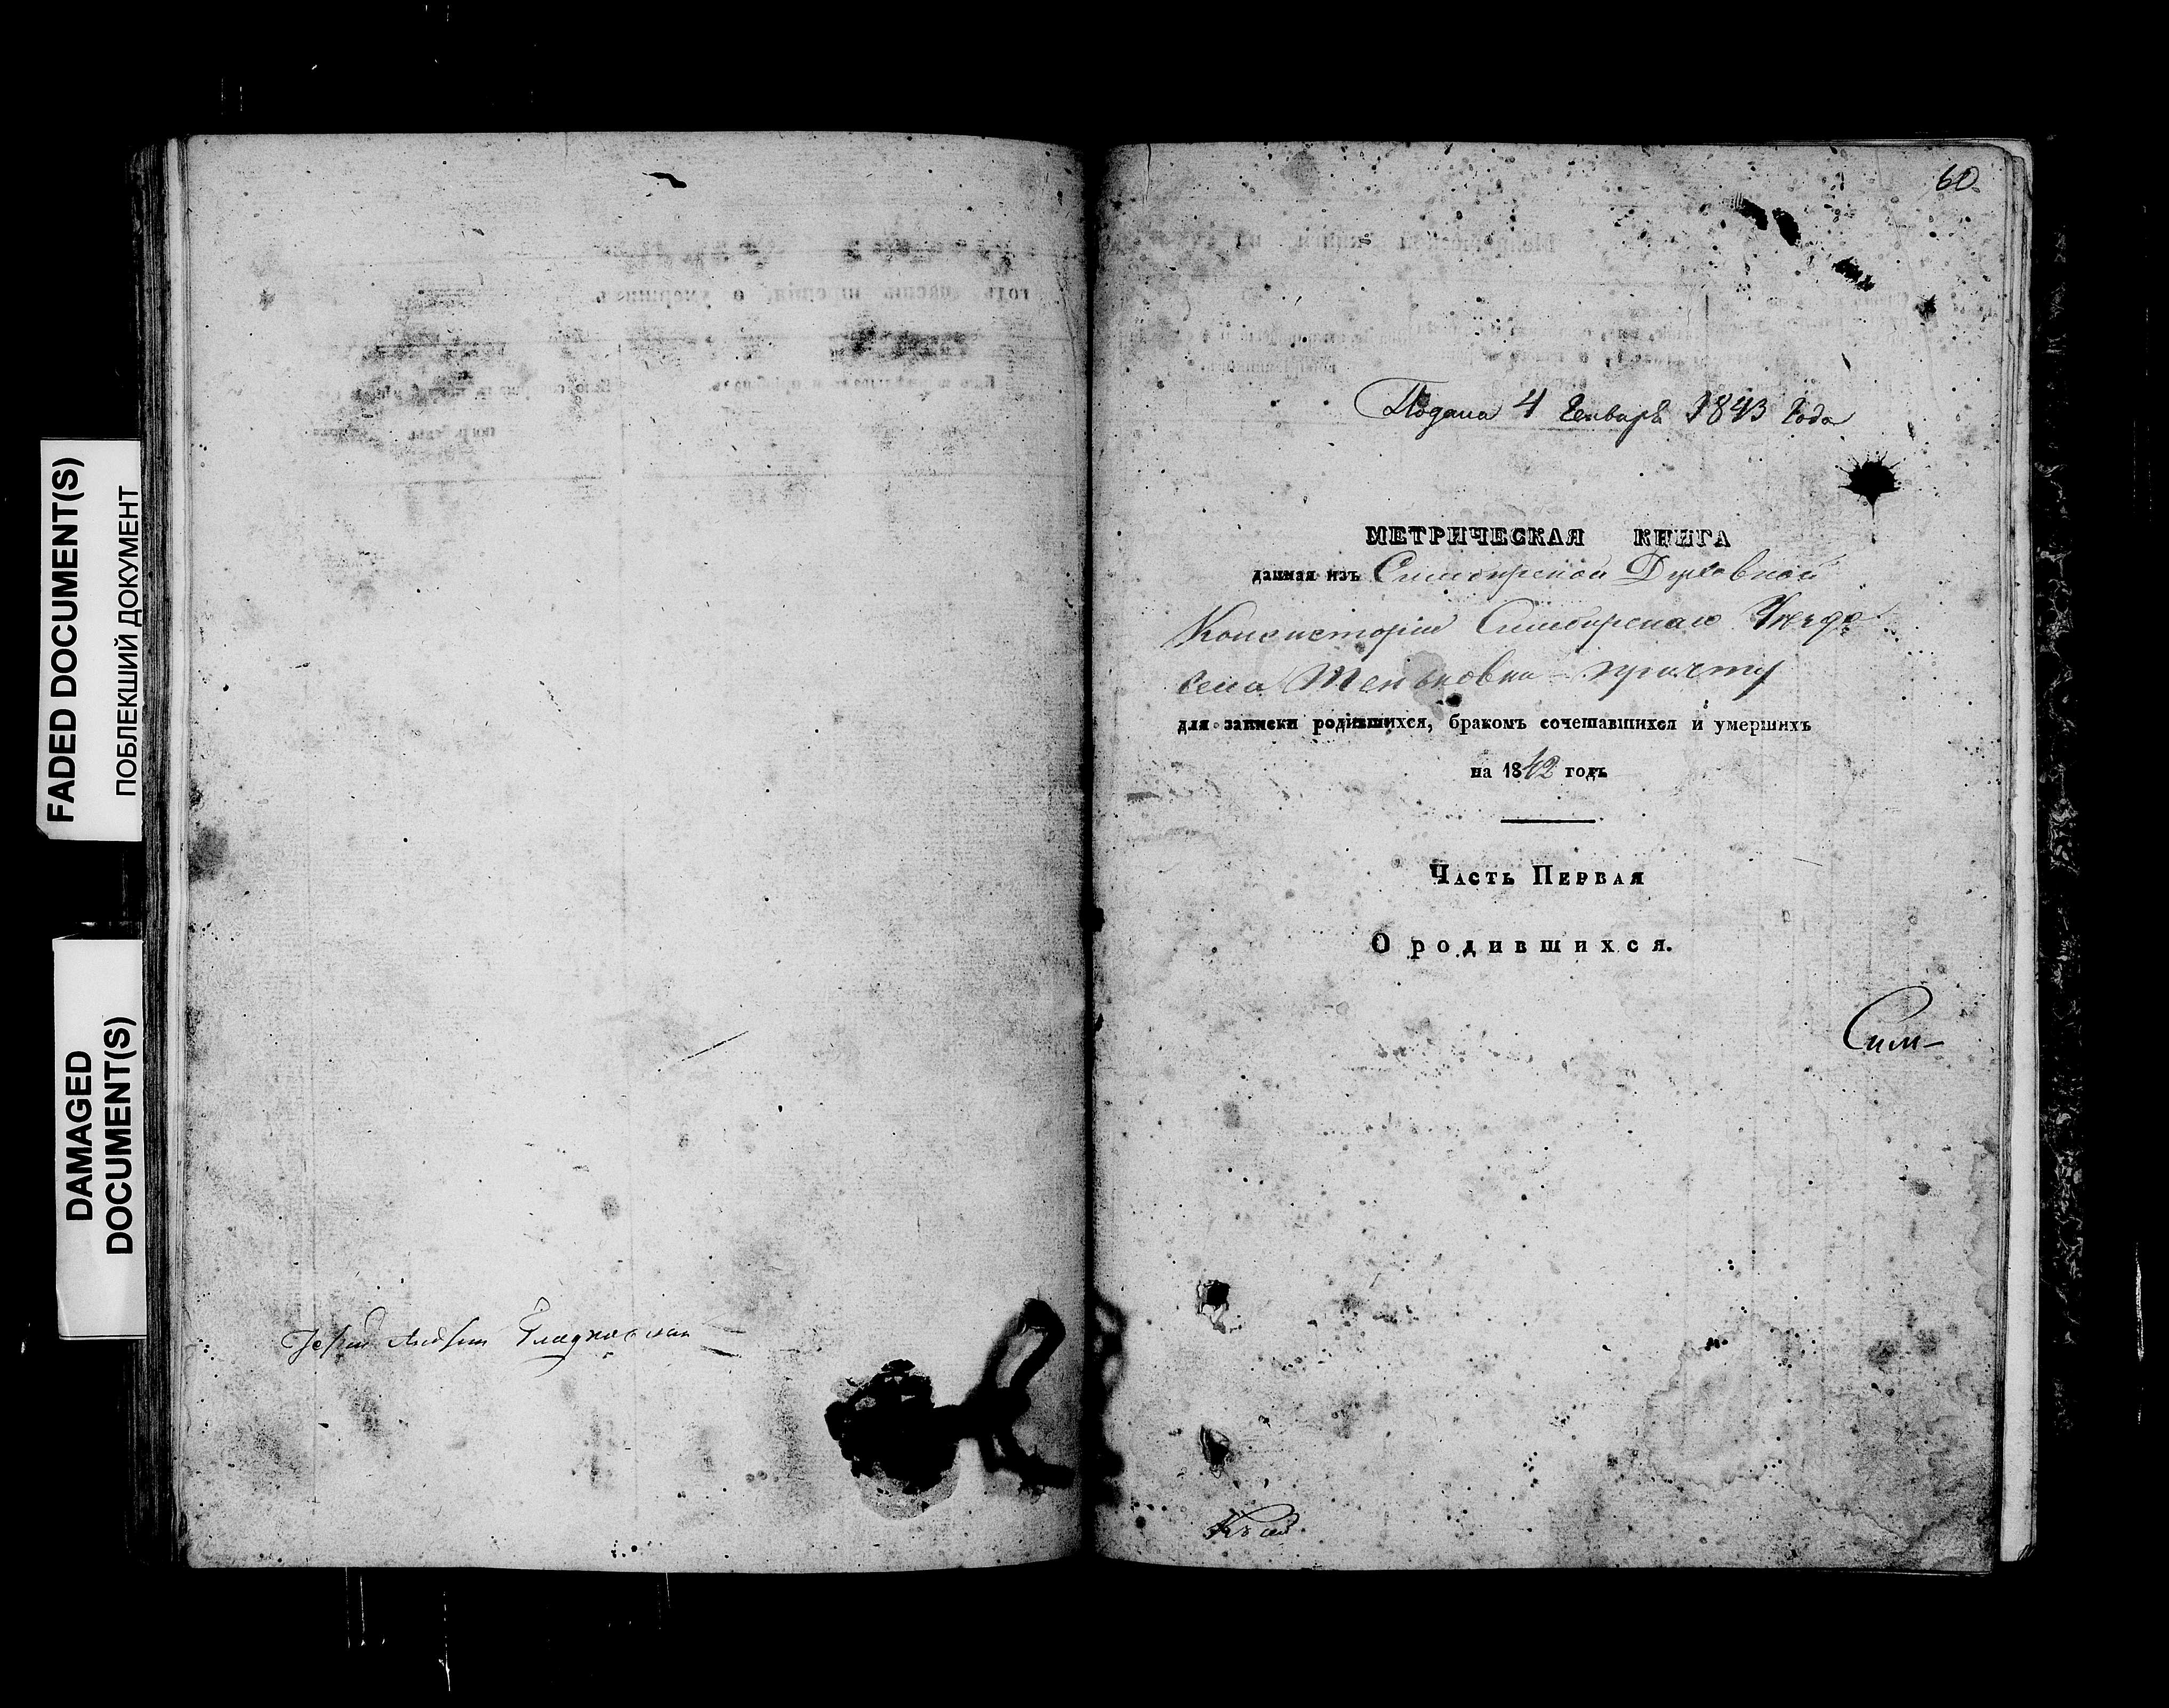 FADED DOCUMENT(S)
ПОБЛЕКШИЙ ДОКУМЕНТ
DAMAGED
DOCUMENT(S)
60
Подана 4 Генваря 1843 Года
МЕТРИЧЕСКАЯ КНИГА
данная изъ Симбирской Духовной
Консисторіи Симбирскаго Уезда
села Теньковки причту
для записки родившихся, бракомъ сочетавшихся и умершихъ
на 1842 годъ
Часть Первая
О родившихся.
Сим-
Къ сей